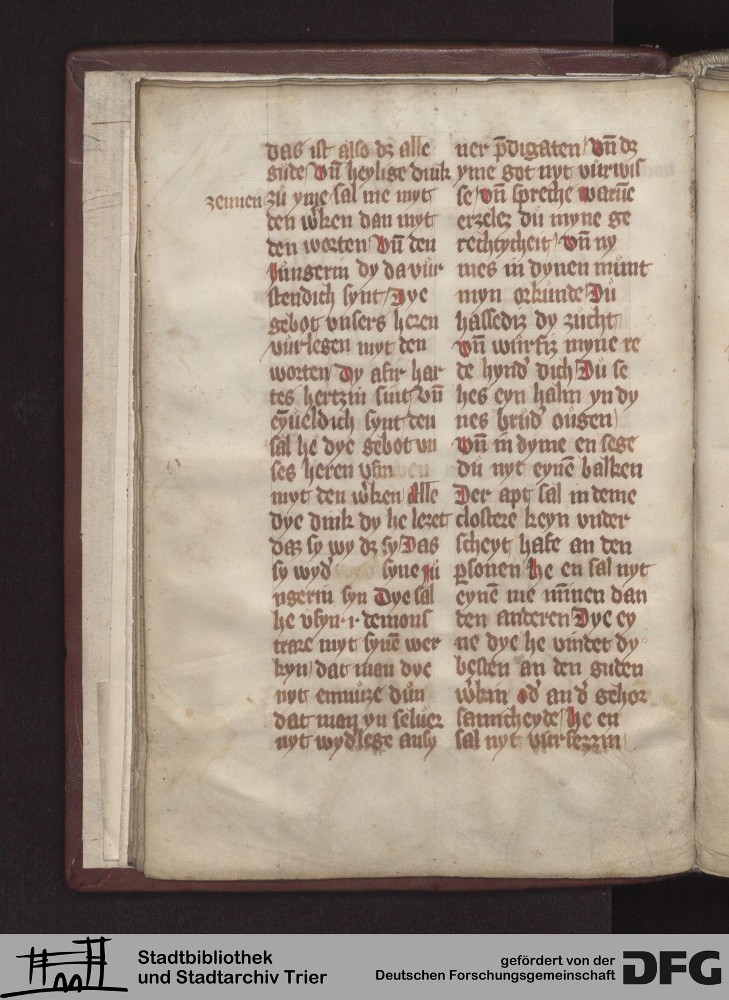 das ist also dz alle
gude Vn̄ heylige dink
zennen zů yme sal me myt
den w̄ken dan myt
den worten Vn̄ den
Jůngerin dy da vůr
stendich synt Dye
gebot vnsers heren
vůrlegen myt den
worten Dy afir har
tes hertzin sint Vn̄
eyͮueldich synt den
sal he dye gebot vn
ses heren
myt den w̄ken Alle
dye dink dy he leret
daz sy wy dz sy Das
sy wyd' syne Jů
ngerin syn Dye sal
he vfyn·r·demons
trare myt synē wer
kyn dat man dye
nyt enwůre důn
dat man yn seluer
nyt wydlege ausy
ner p̄digaten Vn̄ dz
yme got nyt vůrwis
se Vn̄ spreche warūe
erzelez dů myne ge
rechtycheit Vn̄ ny
mes in dynen můnt
myn orkůnde Dů
hassediz dy zůcht
Vn̄ wůrfiz myne re
de hynd' dich Dů se
hes eyn halm yn dy
nes brůd' oůgen
Vn̄ in dyme en sege
dů nyt eynē balken
Der apt sal in deme
clostere keyn vnder
scheyt hafe an den
p̱sonen He en sal nyt
eynē me mīnen dan
den anderen Dye ey
ne dye he vindet dy
besten an den guden
w̄kin od' an d' gehor
samicheyde He en
sal nyt vůrsezzin
Stadtbibliothek
und Stadtarchiv Trier
gefördert von der
Deutschen Forschungsgemeinschaft
DFG